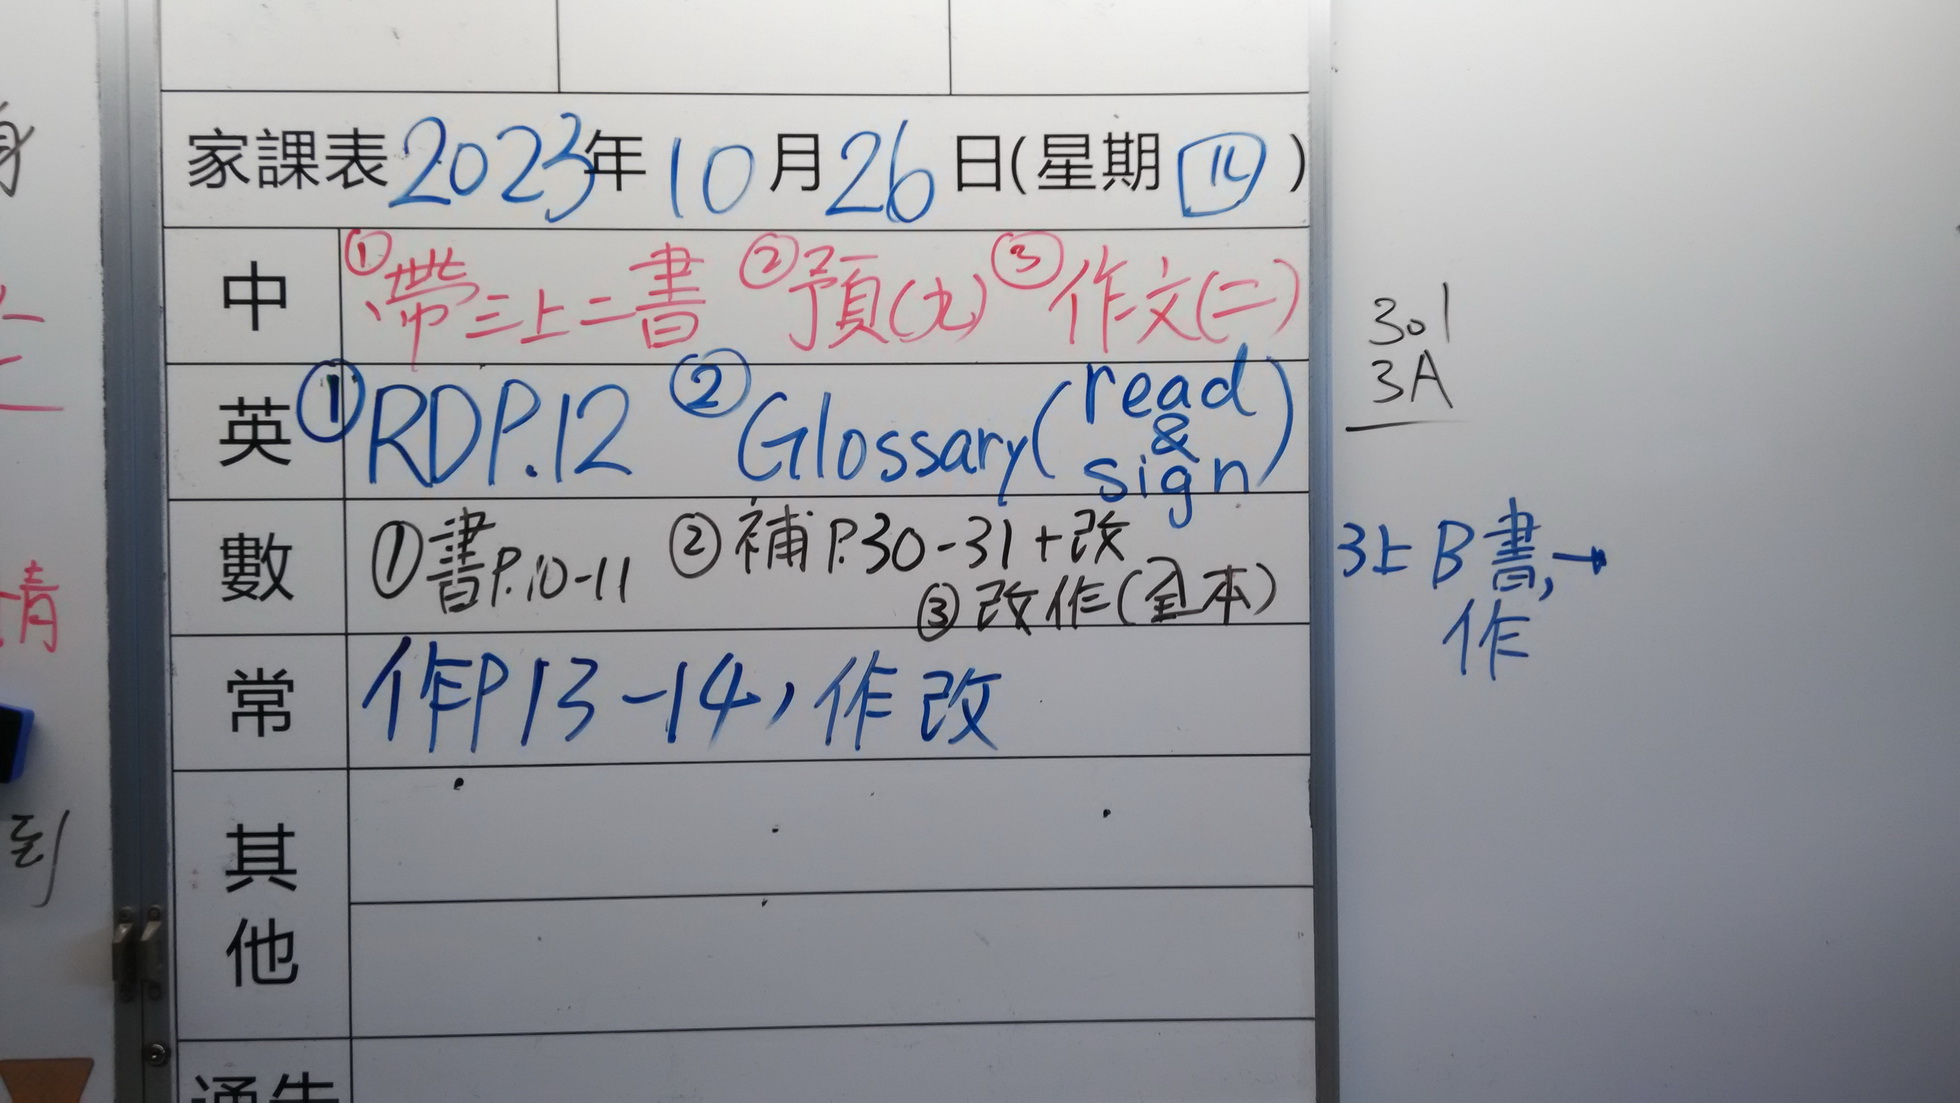 家課表2023年10月26日(星期四)
中 ①帶三上二書 ②預(九) ③作文(二)
英 ①RDP.12 ②Glossary(read & sign)
數 ①書P.10-11 ②補P.30-31+改
③改作(全本)
常 作P13-14，作改
其他
通告
301
3A
3上B書,→
作
情
到